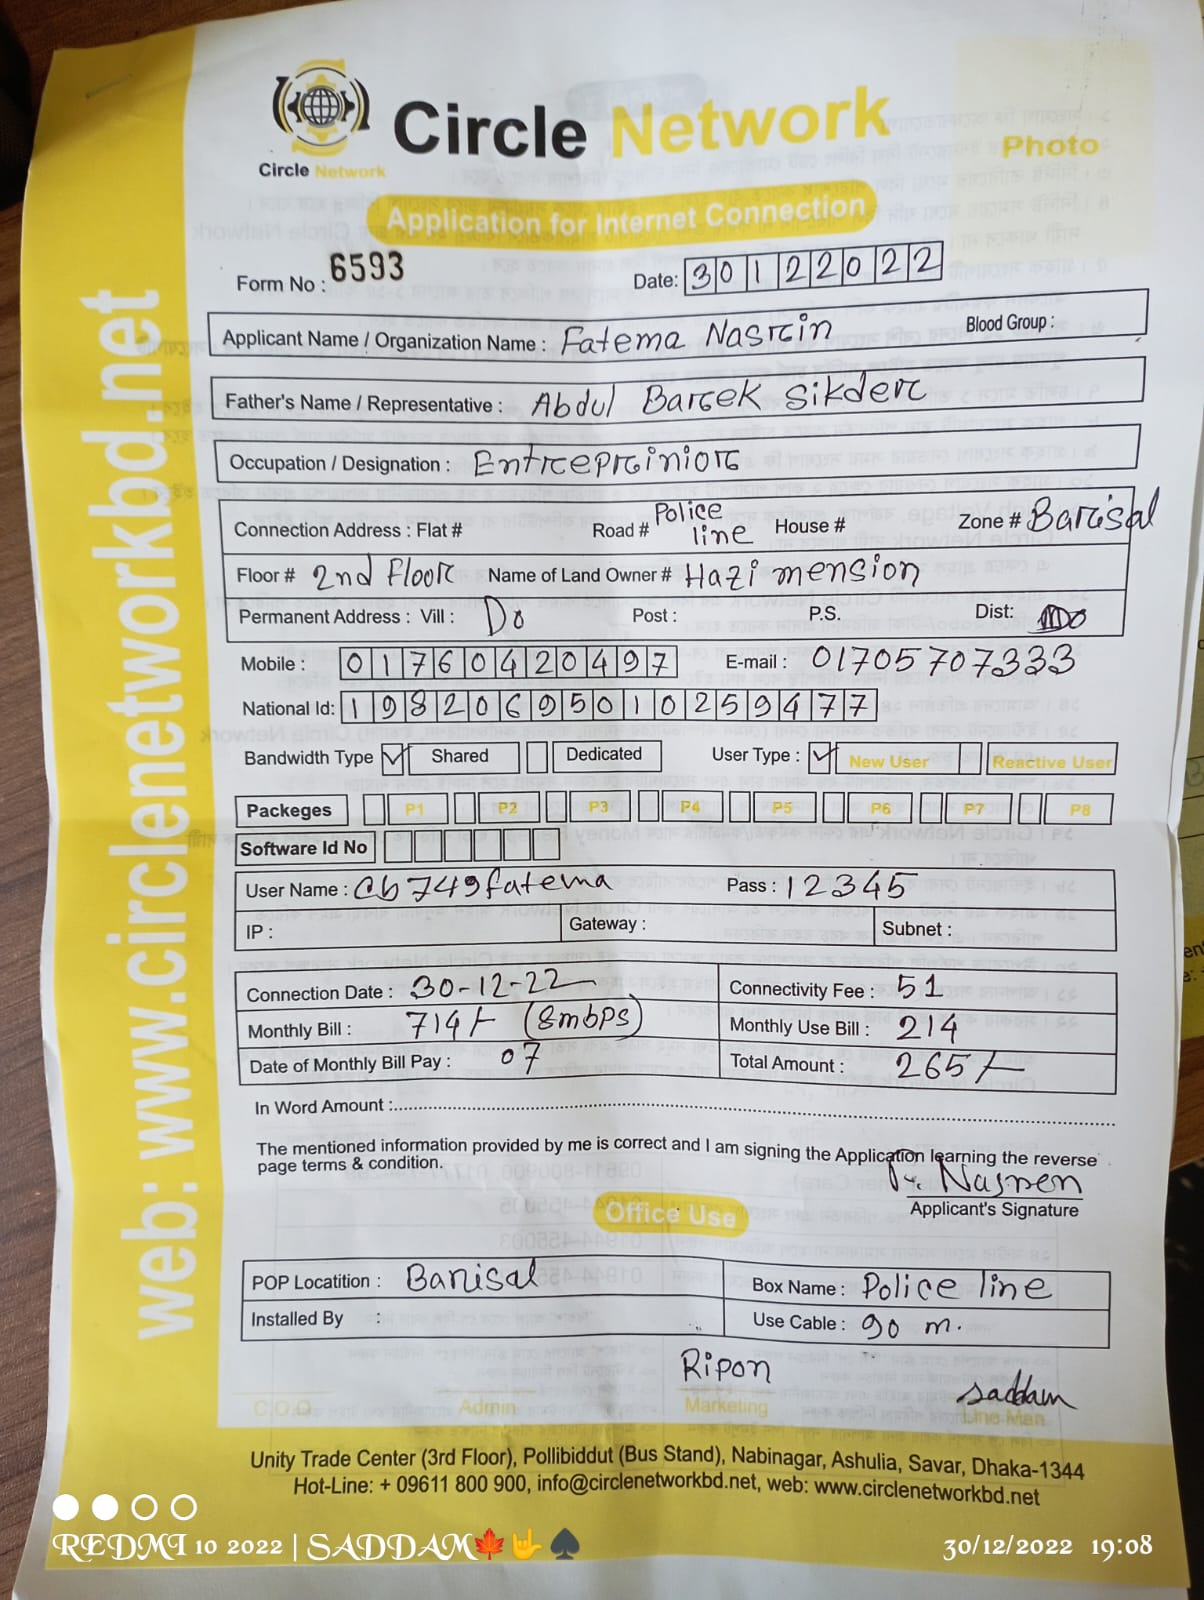 Circle Network
Circle Network
Photo
Application for Internet Connection
Form No : 6593
Date: 30122022
Applicant Name / Organization Name : Fatema Nasrin
Blood Group :
Father's Name / Representative : Abdul Barek Sikder
Occupation / Designation : Entreprinior
Connection Address : Flat # Road # Police line House # Zone # Barisal
Floor # 2nd Floor Name of Land Owner # Hazi mension
Permanent Address : Vill : Do Post : P.S. Dist: Do
Mobile : 01760420497 E-mail : 01705707333
National Id: 19820695010259477
Bandwidth Type Shared Dedicated User Type : New User Reactive User
Packeges P1 P2 P3 P4 P5 P6 P7 P8
Software Id No
User Name : Cb749fatema Pass : 12345
IP : Gateway : Subnet :
Connection Date : 30-12-22 Connectivity Fee : 51
Monthly Bill : 714/- (8mbps) Monthly Use Bill : 214
Date of Monthly Bill Pay : 07 Total Amount : 265/-
In Word Amount :
The mentioned information provided by me is correct and I am signing the Application learning the reverse
page terms & condition.
Nasreen
Applicant's Signature
Office Use
POP Locatition : Barisal Box Name : Police line
Installed By : Use Cable : 90 m.
Ripon
saddam
C.O.O Admin Marketing Line Man
Unity Trade Center (3rd Floor), Pollibiddut (Bus Stand), Nabinagar, Ashulia, Savar, Dhaka-1344
Hot-Line: + 09611 800 900, info@circlenetworkbd.net, web: www.circlenetworkbd.net
web: www.circlenetworkbd.net
REDMI 10 2022 | SADDAM🍁🤟♠
30/12/2022 19:08